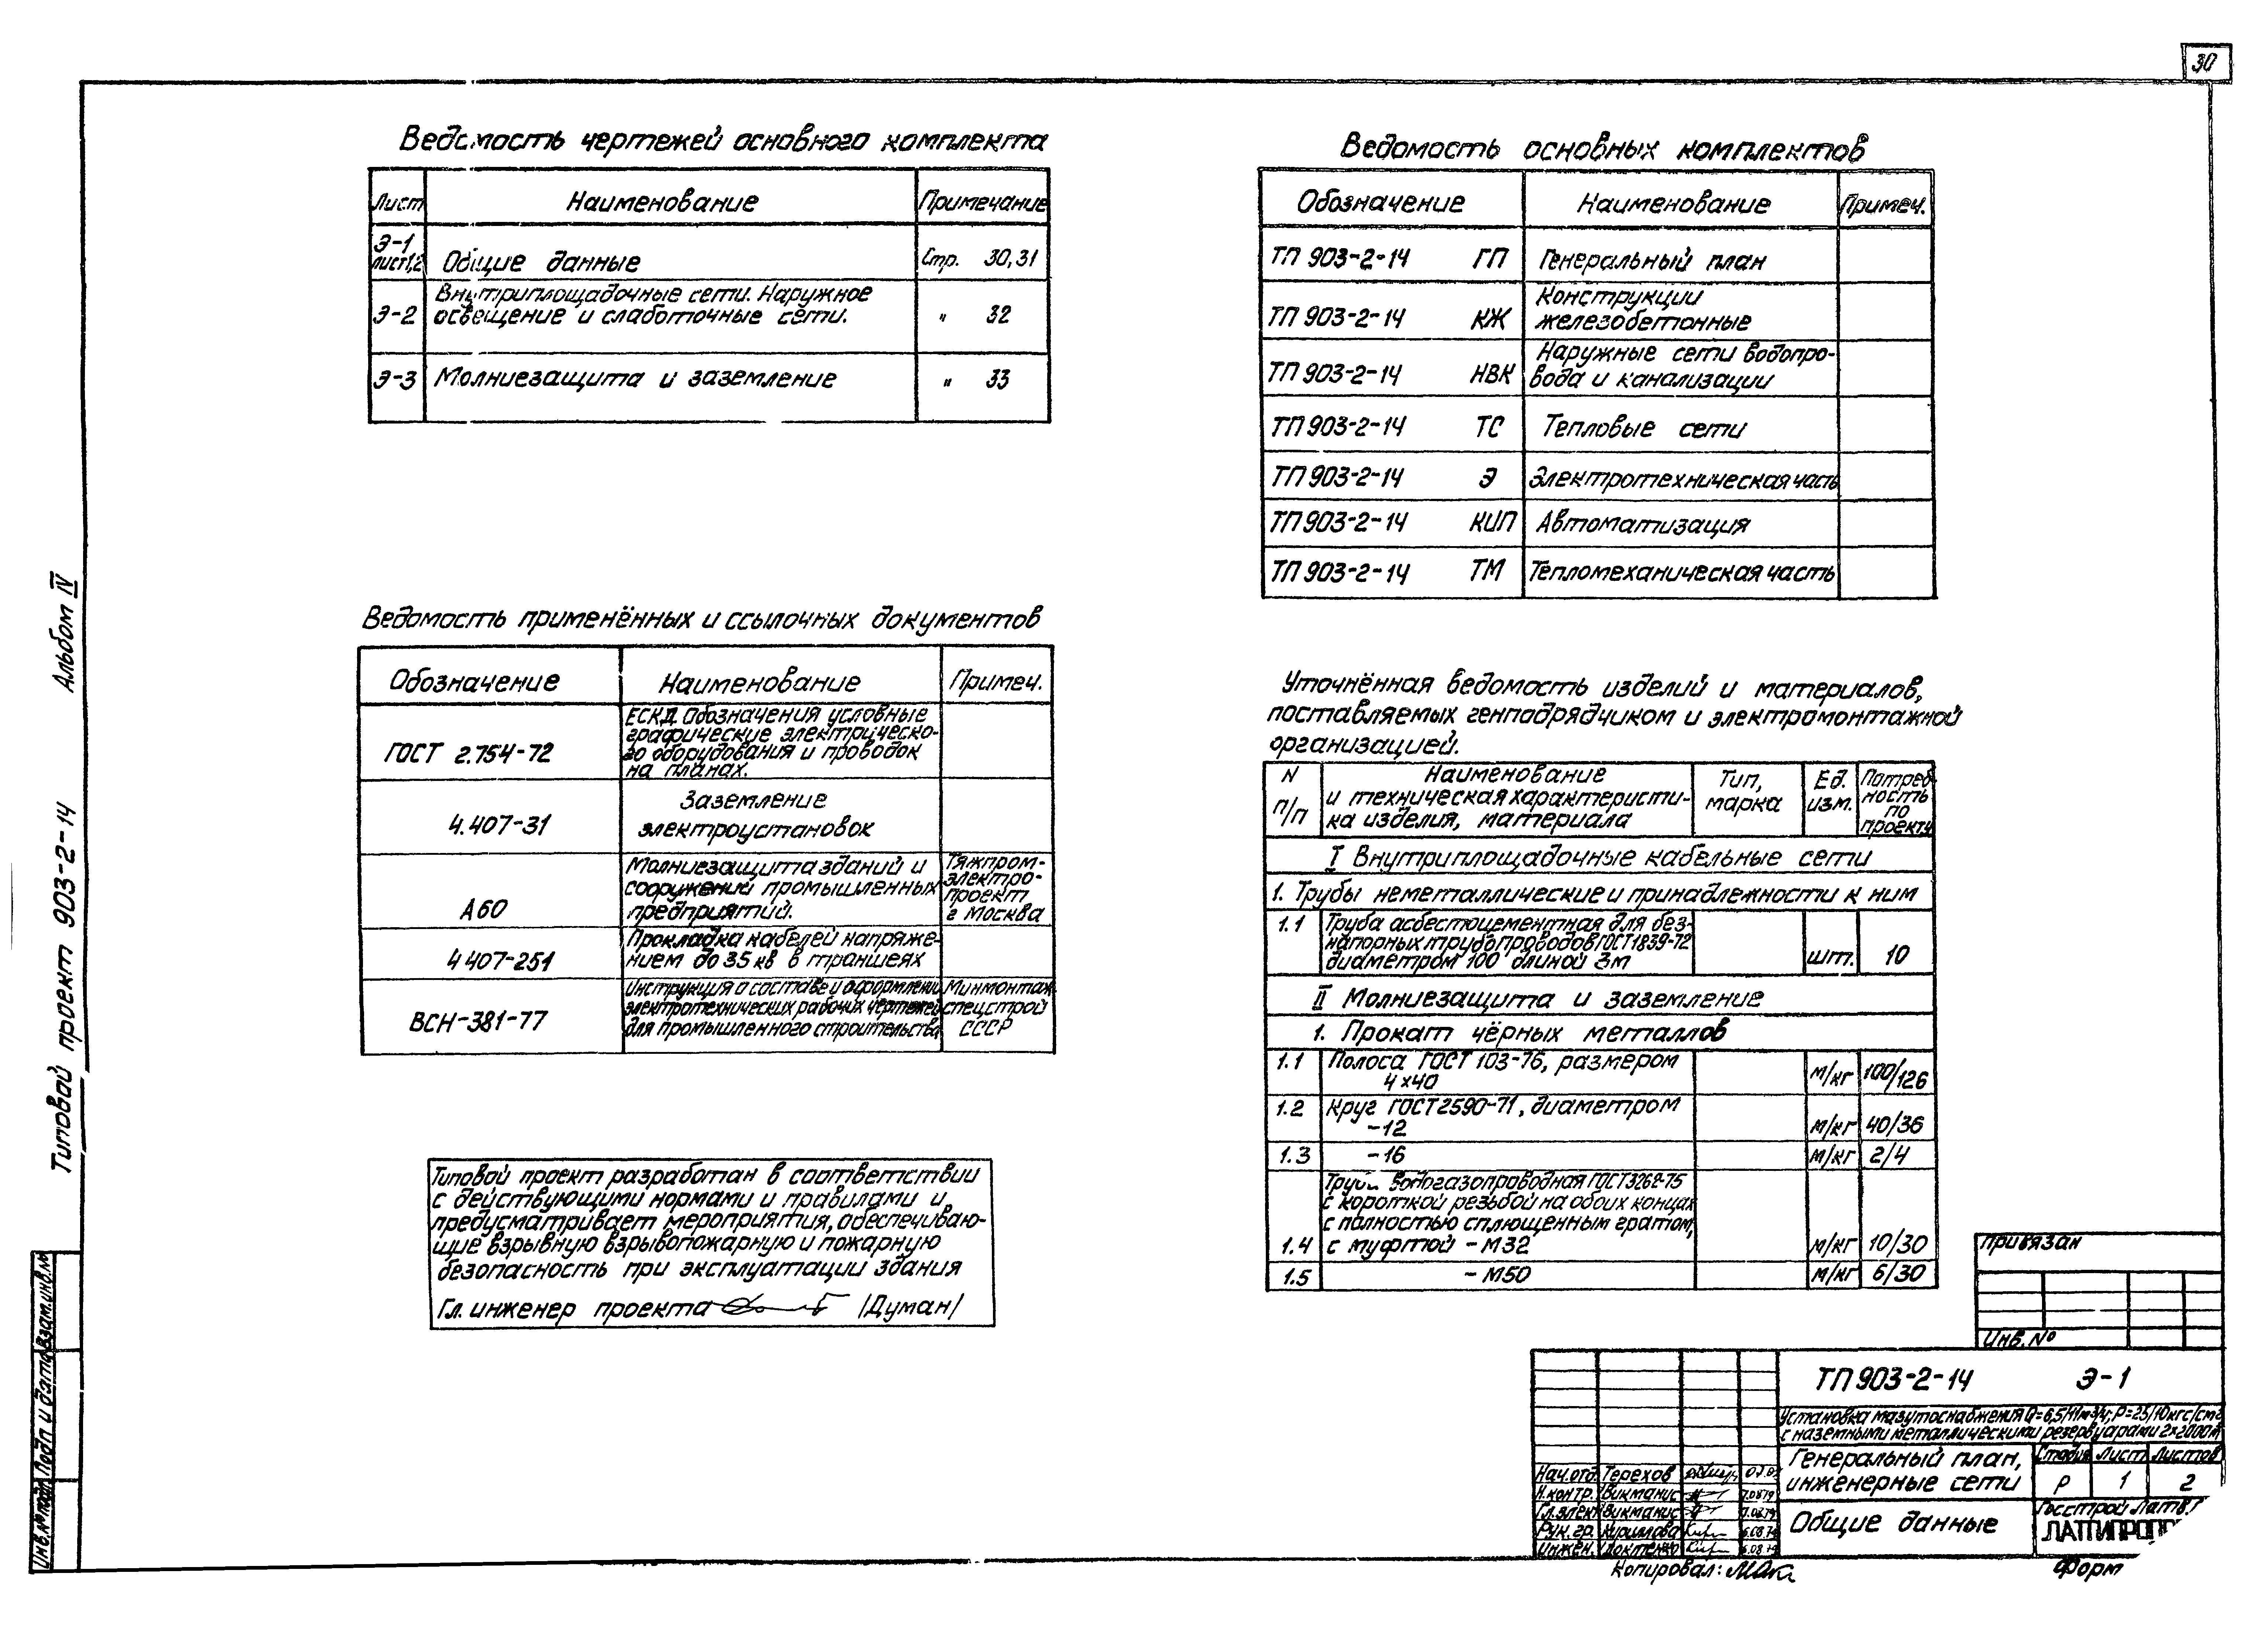 30
Ведомость чертежей основного комплекта
Лист Наименование Примечание
Э-1 лист1,2 Общие данные Стр. 30,31
Внутриплощадочные сети. Наружное
Э-2 освещение и слаботочные сети. " 32
Э-3 Молниезащита и заземление " 33
Ведомость применённых и ссылочных документов
Обозначение Наименование Примеч.
ГОСТ 2.754-72 ЕСКД Обозначения условные
графические электрическо-
го оборудования и проводок
на планах.
4.407-31 Заземление
электроустановок
А60 Молниезащита зданий и
сооружений промышленных
предприятий.
Тяжпром-
электро-
проект
г Москва
4 407-251 Прокладка кабелей напряже-
нием до 35 кв в траншеях
ВСН-381-77 Инструкция о составе и оформлении
электротехнических рабочих чертежей
для промышленного строительства
Минмонтаж
спецстрой
СССР
Типовой проект разработан в соответствии
с действующими нормами и правилами и
предусматривает мероприятия, обеспечиваю-
щие взрывную взрывопожарную и пожарную
безопасность при эксплуатации здания
Гл. инженер проекта /Думан/
Ведомость основных комплектов
Обозначение Наименование Примеч.
ТП 903-2-14 ГП Генеральный план
ТП 903-2-14 КЖ Конструкции
железобетонные
ТП 903-2-14 НВК Наружные сети водопро-
вода и канализации
ТП 903-2-14 ТС Тепловые сети
ТП 903-2-14 Э Электротехническая часть
ТП 903-2-14 КИП Автоматизация
ТП 903-2-14 ТМ Тепломеханическая часть
Уточнённая ведомость изделий и материалов,
поставляемых генподрядчиком и электромонтажной
организацией.
N п/п Наименование
и техническая характеристи-
ка изделия, материала
Тип, марка
Ед. изм.
Потреб-
ность
по
проекту
I Внутриплощадочные кабельные сети
1. Трубы неметаллические и принадлежности к ним
1.1 Труба асбестоцементная для без-
напорных трубопроводов ГОСТ 1839-72
диаметром 100 длиной 3м шт. 10
II Молниезащита и заземление
1. Прокат чёрных металлов
1.1 Полоса ГОСТ 103-76, размером
4×40 м/кг 100/126
1.2 Круг ГОСТ 2590-71, диаметром
-12 м/кг 40/36
1.3 -16 м/кг 2/4
Труба водогазопроводная ГОСТ 3262-75
с короткой резьбой на обоих концах
с полностью сплющенным гратом,
1.4 с муфтой - М32 м/кг 10/30
1.5 - М50 м/кг 6/30
Типовой проект 903-2-14 Альбом IV
Инв. № подл. Подп и дата Взам.инв.№
привязан
Инв. №
ТП 903-2-14 Э-1
Установка мазутоснабжения Q=6,5/11м³/ч; Р=25/10кгс/см²
с наземными металлическими резервуарами 2×2000м
Генеральный план,
инженерные сети
Стадия Лист Листов
Р 1 2
Общие данные
Госстрой Латв.
ЛАТГИПРОПР
Нач.отд. Терехов
Н.контр. Викманис
Гл.элек Викманис
Рук. гр. Кириллова
Инжен.
Копировал:
Форм